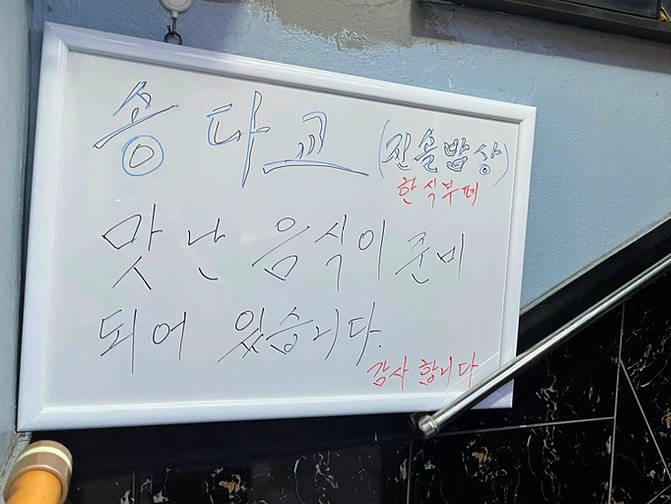 송다교 (진솔밥상)
한식부페
맛난 음식이 준비
되어 있습니다.
감사합니다